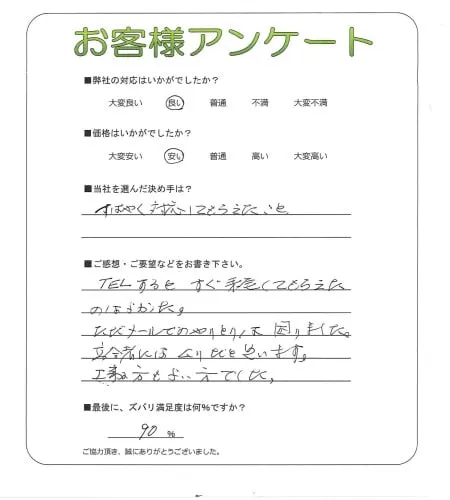 お客様アンケート
■弊社の対応はいかがでしたか?
大変良い 良い 普通 不満 大変不満
■価格はいかがでしたか?
大変安い 安い 普通 高い 大変高い
■当社を選んだ決め手は?
すばやく対応してもらえたこと
■ご感想・ご要望などをお書き下さい。
TELするとすぐ手配してもらえた
のはよかった。
ただメールでのやりとりは困りました。
思います。
工事の方もよい方でした。
■最後に、ズバリ満足度は何%ですか?
90 %
ご協力頂き、誠にありがとうございました。